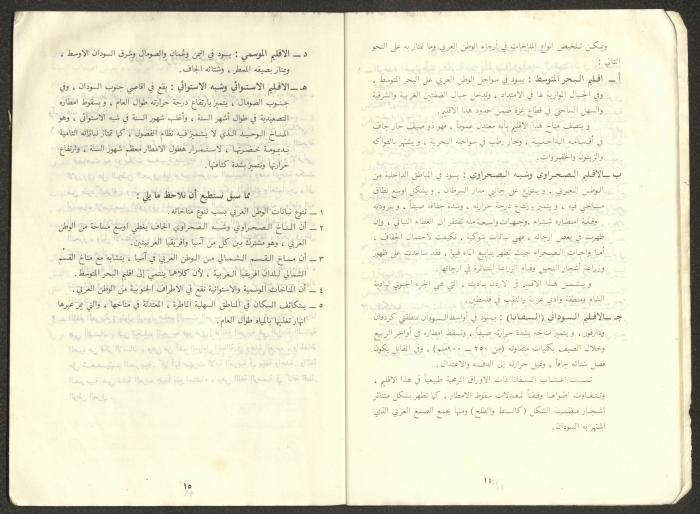 ويمكن تلخيص انواع المناخات في أرجاء الوطن العربي وما تمتاز به على النحو
التالي :
أ ـ اقليم البحر المتوسط : يسود في سواحل الوطن العربي على البحر المتوسط ،
وفي الجبال الموازية لها في الامتداد ، وتدخل جبال الضفتين الغربية والشرقية
والسهل الساحلي في قطاع غزة ضمن حدود هذا الاقليم .
و يتصف مناخ هذا الاقليم بأنه معتدل عموماً ، فهو دو صيف حار جاف
في أقسامه الداخلية ، وحار رطب في سواحله البحرية ، و يشتهر بالفواكه
والزيتون والخضروات .
ب ـ الاقليم الصحراوي وشبه الصحراوي : يسود في المناطق الداخلية من
الوطن العربي ، و يتوزع على جانبي مدار السرطان ، و يشكل أوسع نطاق
مناخي فيه ، و يتميز بارتفاع درجة حرارته ، وشدة جفافه صيفاً ، و ببرودته
وقلة امطاره شتاء وجهات واسعة منه تفتقر إلى الغطاء النباتي ، وإن
ظهرت في بعض ارجائه ، فهي نباتات شوكية ، تكيفت لاحتمال الجفاف ،
أما واحات الصحراء حيث تظهر ينابيع الماء فيها ، فقد ساعدت على ظهور
وزراعة أشجار النخيل وقيام الزراعة المتناثرة في ارجائها .
و يشتمل هذا الاقليم في الاردن باديته ، التي هي الجزء الجنوبي لبادية
الشام ومنطقة وادي عربة والنقب في فلسطين .
جـ ـ الاقليم السوداني (السفانا) : يسود في أواسط السودان منطقتي كردفان
ودارفور ، و يتميز مناخه بشدة حرارته صيفاً ، وتسقط امطاره في أواخر الربيع
وخلال الصيف بكميات متفاوتة (من ٢٥٠ ـ ٩٠٠ملم) ، وفي المقابل يكون
فصل شتائه جافاً ، وتميل حرارته إلى الدفء والاعتدال .
تنبت اعشاب السفانا ذات الاوراق الرمحية طبيعياً في هذا الاقليم ،
وتتفاوت اطوالها وفقاً لمعدلات سقوط الامطار ، كما تظهر بشكل متناثر
اشجار مظلية الشكل (كالسنط والطلح) ومنها يجمع الصمغ العربي الذي
اشتهر به السودان .
١٤
د ـ الاقليم الموسمي : يسود في اليمن وعُمان والصومال وشرق السودان الاوسط ،
ويمتاز بصيفه الممطر ، وشتائه الجاف .
هـ ـ الاقليم الاستوائي وشبه الاستوائي : يقع في اقاصي جنوب السودان ، وفي
جنوب الصومال ، يتميز بارتفاع درجة حرارته طوال العام ، و بسقوط امطاره
التصعيدية في طوال أشهر السنة ، وأغلب شهور السنة في شبه الاستوائي ، وهو
المناخ الوحيد الذي لا يتميز فيه نظام الفصول ، كما تمتاز نباتاته النامية
بديمومة خضرتها ، لاستمرار هطول الامطار معظم شهور السنة ، وارتفاع
حرارتها وتتميز بشدة كثافتها .
مما سبق نستطيع أن نلاحظ ما يلي :
١ ـ تنوع نباتات الوطن العربي بسبب تنوع مناخاته .
٢ ـ أن المناخ الصحراوي وشبه الصحراوي الجاف يغطي أوسع مساحة من الوطن
العربي ، وهو مشترك بين كل من آسيا وافريقيا العربيتين .
٣ ـ أن مناخ القسم الشمالي من الوطن العربي في آسيا ، يتشابه مع مناخ القسم
الشمالي لبلدان افريقيا العربية ، لأن كلاهما ينتمي إلى اقليم البحر المتوسط .
٤ ـ أن المناخات الموسمية والاستوائية تقع في الاطراف الجنوبية من الوطن العربي .
٥ ـ يتكاثف السكان في المناطق السهلية الماطرة ، المعتدلة في مناخها ، والتي تمر عبرها
انهار تغذيها بالمياه طوال العام .
١٥